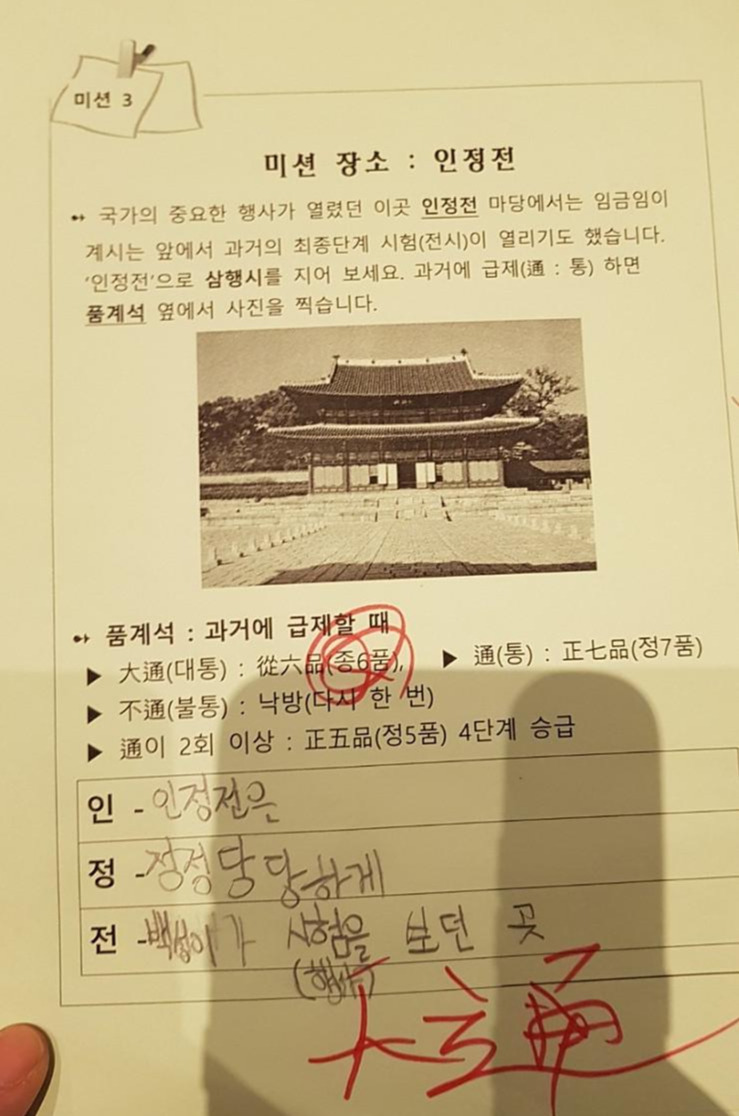 미션 3
미션 장소 : 인정전
➻ 국가의 중요한 행사가 열렸던 이곳 인정전 마당에서는 임금임이
계시는 앞에서 과거의 최종단계 시험(전시)이 열리기도 했습니다.
'인정전'으로 삼행시를 지어 보세요. 과거에 급제(通 : 통) 하면
품계석 옆에서 사진을 찍습니다.
➻ 품계석 : 과거에 급제할 때
▶ 大通(대통) : 從六品(종6품), ▶ 通(통) : 正七品(정7품)
▶ 不通(불통) : 낙방(다시 한 번)
▶ 通이 2회 이상 : 正五品(정5품) 4단계 승급
인 - 인정전은
정 - 정정당당하게
전 - 시험을 보던 곳
(행사)
大 通